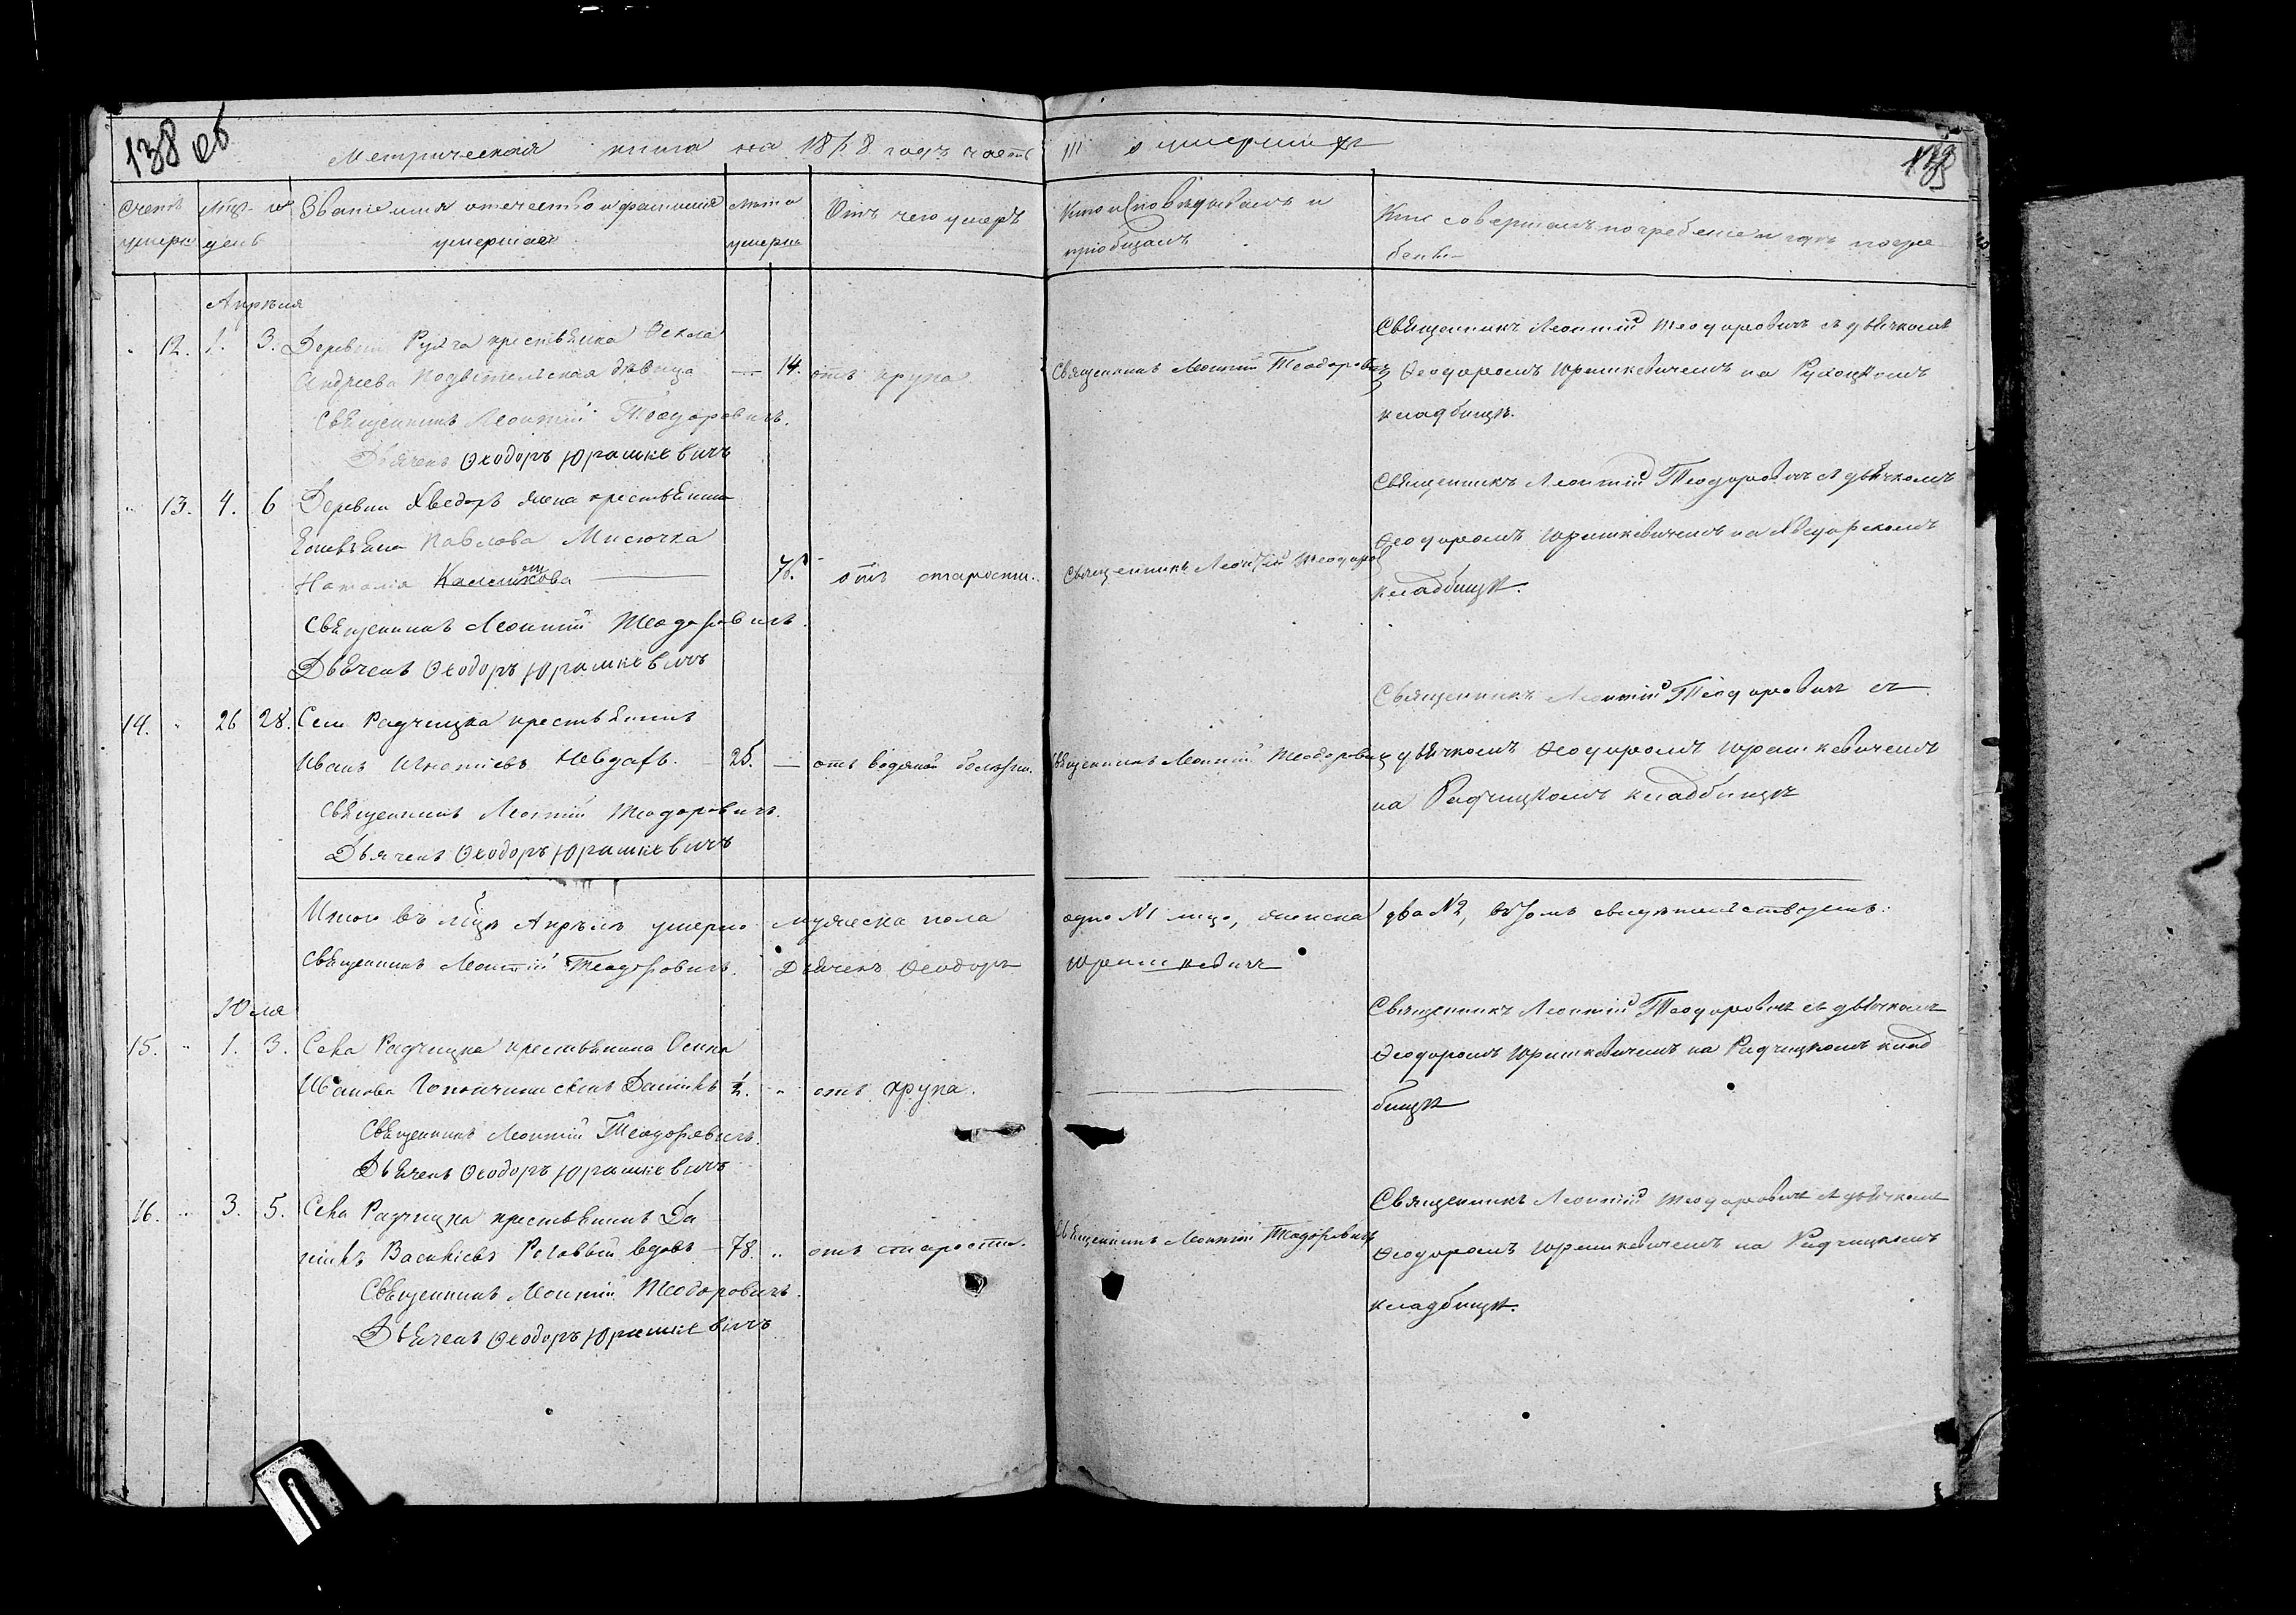 138 об
Метрическая книга на 18 8 годъ часть III о умершихъ
139
Счетъ умерш
Мцъ и день
Званіе имя отечество и фамилія умершаго
Лета умерш
Отъ чего умеръ
Кто исповѣдывалъ и пріобщалъ
Кто совершалъ погребеніе и гдѣ погребенъ
Апрѣля
12. 1. 3. Деревни крестьянка Ѳекла
Андреева дѣвица — 14. отъ крупа
Священникъ Леонтій Теодоровичъ
Священникъ Леонтій Теодоровичъ съ дьячкомъ
Ѳеодоромъ Юрашкевичемъ на Рухоцкомъ
кладбищѣ.
Священникъ Леонтій Теодоровичъ.
Дьячекъ Ѳеодоръ Юрашкевичъ
13. 4. 6 Деревни Хведоръ жена крестьянина
Павлова Мисючка
Наталія — 78. отъ старости.
Священникъ Леонтій Теодоров
Священникъ Леонтій Теодоровичъ съ дьячкомъ
Ѳеодоромъ Юрашкевичемъ на Хведорскомъ
кладбищѣ.
Священникъ Леонтій Теодоровичъ.
Дьячекъ Ѳеодоръ Юрашкевичъ
14. 26 28. Села Радчицка крестьянинъ
Иванъ Игнатіевъ Невдахъ. — 25. — отъ водяной болѣзни.
Священникъ Леонтій Теодорович
Священникъ Леонтій Теодоровичъ съ
дьячкомъ Ѳеодоромъ Юрашкевичемъ
на Радчицкомъ кладбищѣ
Священникъ Леонтій Теодоровичъ.
Дьячекъ Ѳеодоръ Юрашкевичъ
Итого въ мцѣ Апрѣлѣ умерло мужеска пола одно №1 лице, женска два №2, въ томъ свидѣтельствуемъ:
Священникъ Леонтій Теодоровичъ. Дьячекъ Ѳеодоръ Юрашкевичъ
Юля
15. 1. 3. Села Радчицка крестьянина Осипа
Иванова сынъ Даниилъ ½. отъ крупа.
Священникъ Леонтій Теодоровичъ съ дьячкомъ
Ѳеодоромъ Юрашкевичемъ на Радчицкомъ клад
бищѣ
Священникъ Леонтій Теодоровичъ.
Дьячекъ Ѳеодоръ Юрашкевичъ
16. 3. 5. Села Радчицка крестьянинъ Да
ніилъ Васильевъ вдовъ — 78. отъ старости.
Священникъ Леонтій Теодоровичъ
Священникъ Леонтій Теодоровичъ съ дьячкомъ
Ѳеодоромъ Юрашкевичемъ на Радчицкомъ
кладбищѣ.
Священникъ Леонтій Теодоровичъ.
Дьячекъ Ѳеодоръ Юрашкевичъ